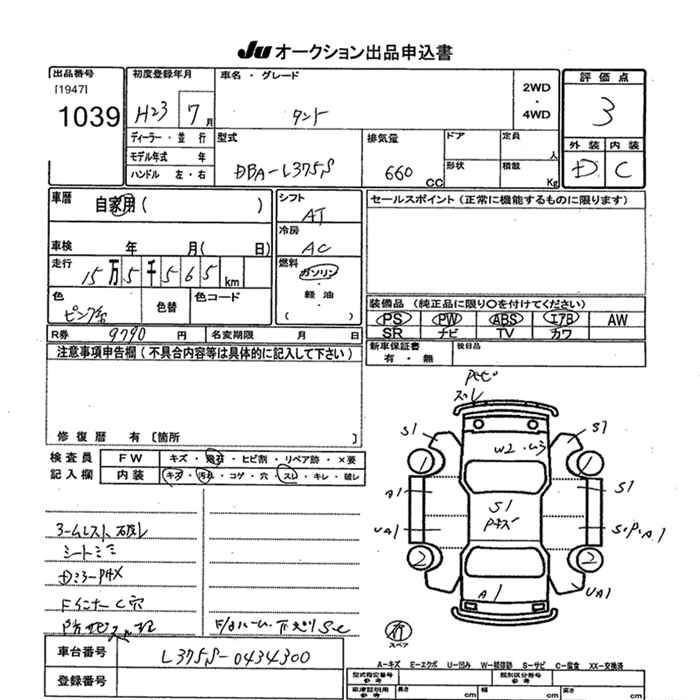 JU オークション出品申込書
出品番号
[1947]
1039
初度登録年月
H23 7月
車名・グレード
タント
2WD
・
4WD
評価点
3
外装 内装
D C
ディーラー・並行
モデル年式 年
ハンドル 左・右
型式
DBA-L375S
排気量
660 CC
ドア
形状
定員 人
積載 Kg
車歴
自家用( )
車検 年 月( 日)
走行
15万5千565km
色
ピンク
色替
色コード
シフト
AT
冷房
AC
燃料
ガソリン
・
軽油
( )
セールスポイント(正常に機能するものに限ります)
装備品(純正品に限り○を付けてください)
PS PW ABS エアB AW
SR ナビ TV カワ
R券 9790 円 名変期限 月 日
新車保証書
有・無
後日品
注意事項申告欄(不具合内容等は具体的に記入して下さい)
修復歴 有 [箇所 ]
検査員
記入欄
FW キズ・飛石・ヒビ割・リペア跡・×要
内装 キズ・汚れ・コゲ・穴・スレ・キレ・破レ
シート
車台番号 L375S-0434300
登録番号
スレ
S1
S1
W2・U3
A1
S1
S1
UA1
S・P・A1
1
1
2
2
A1
UA1
スペア
A-キズ E-エクボ U-凹み W-補修跡 S-サビ C-腐食 XX-交換済
型式指定番号
参考
類別区分番号
参考
車庫証明用
参考
長さ cm 幅 cm 高さ cm